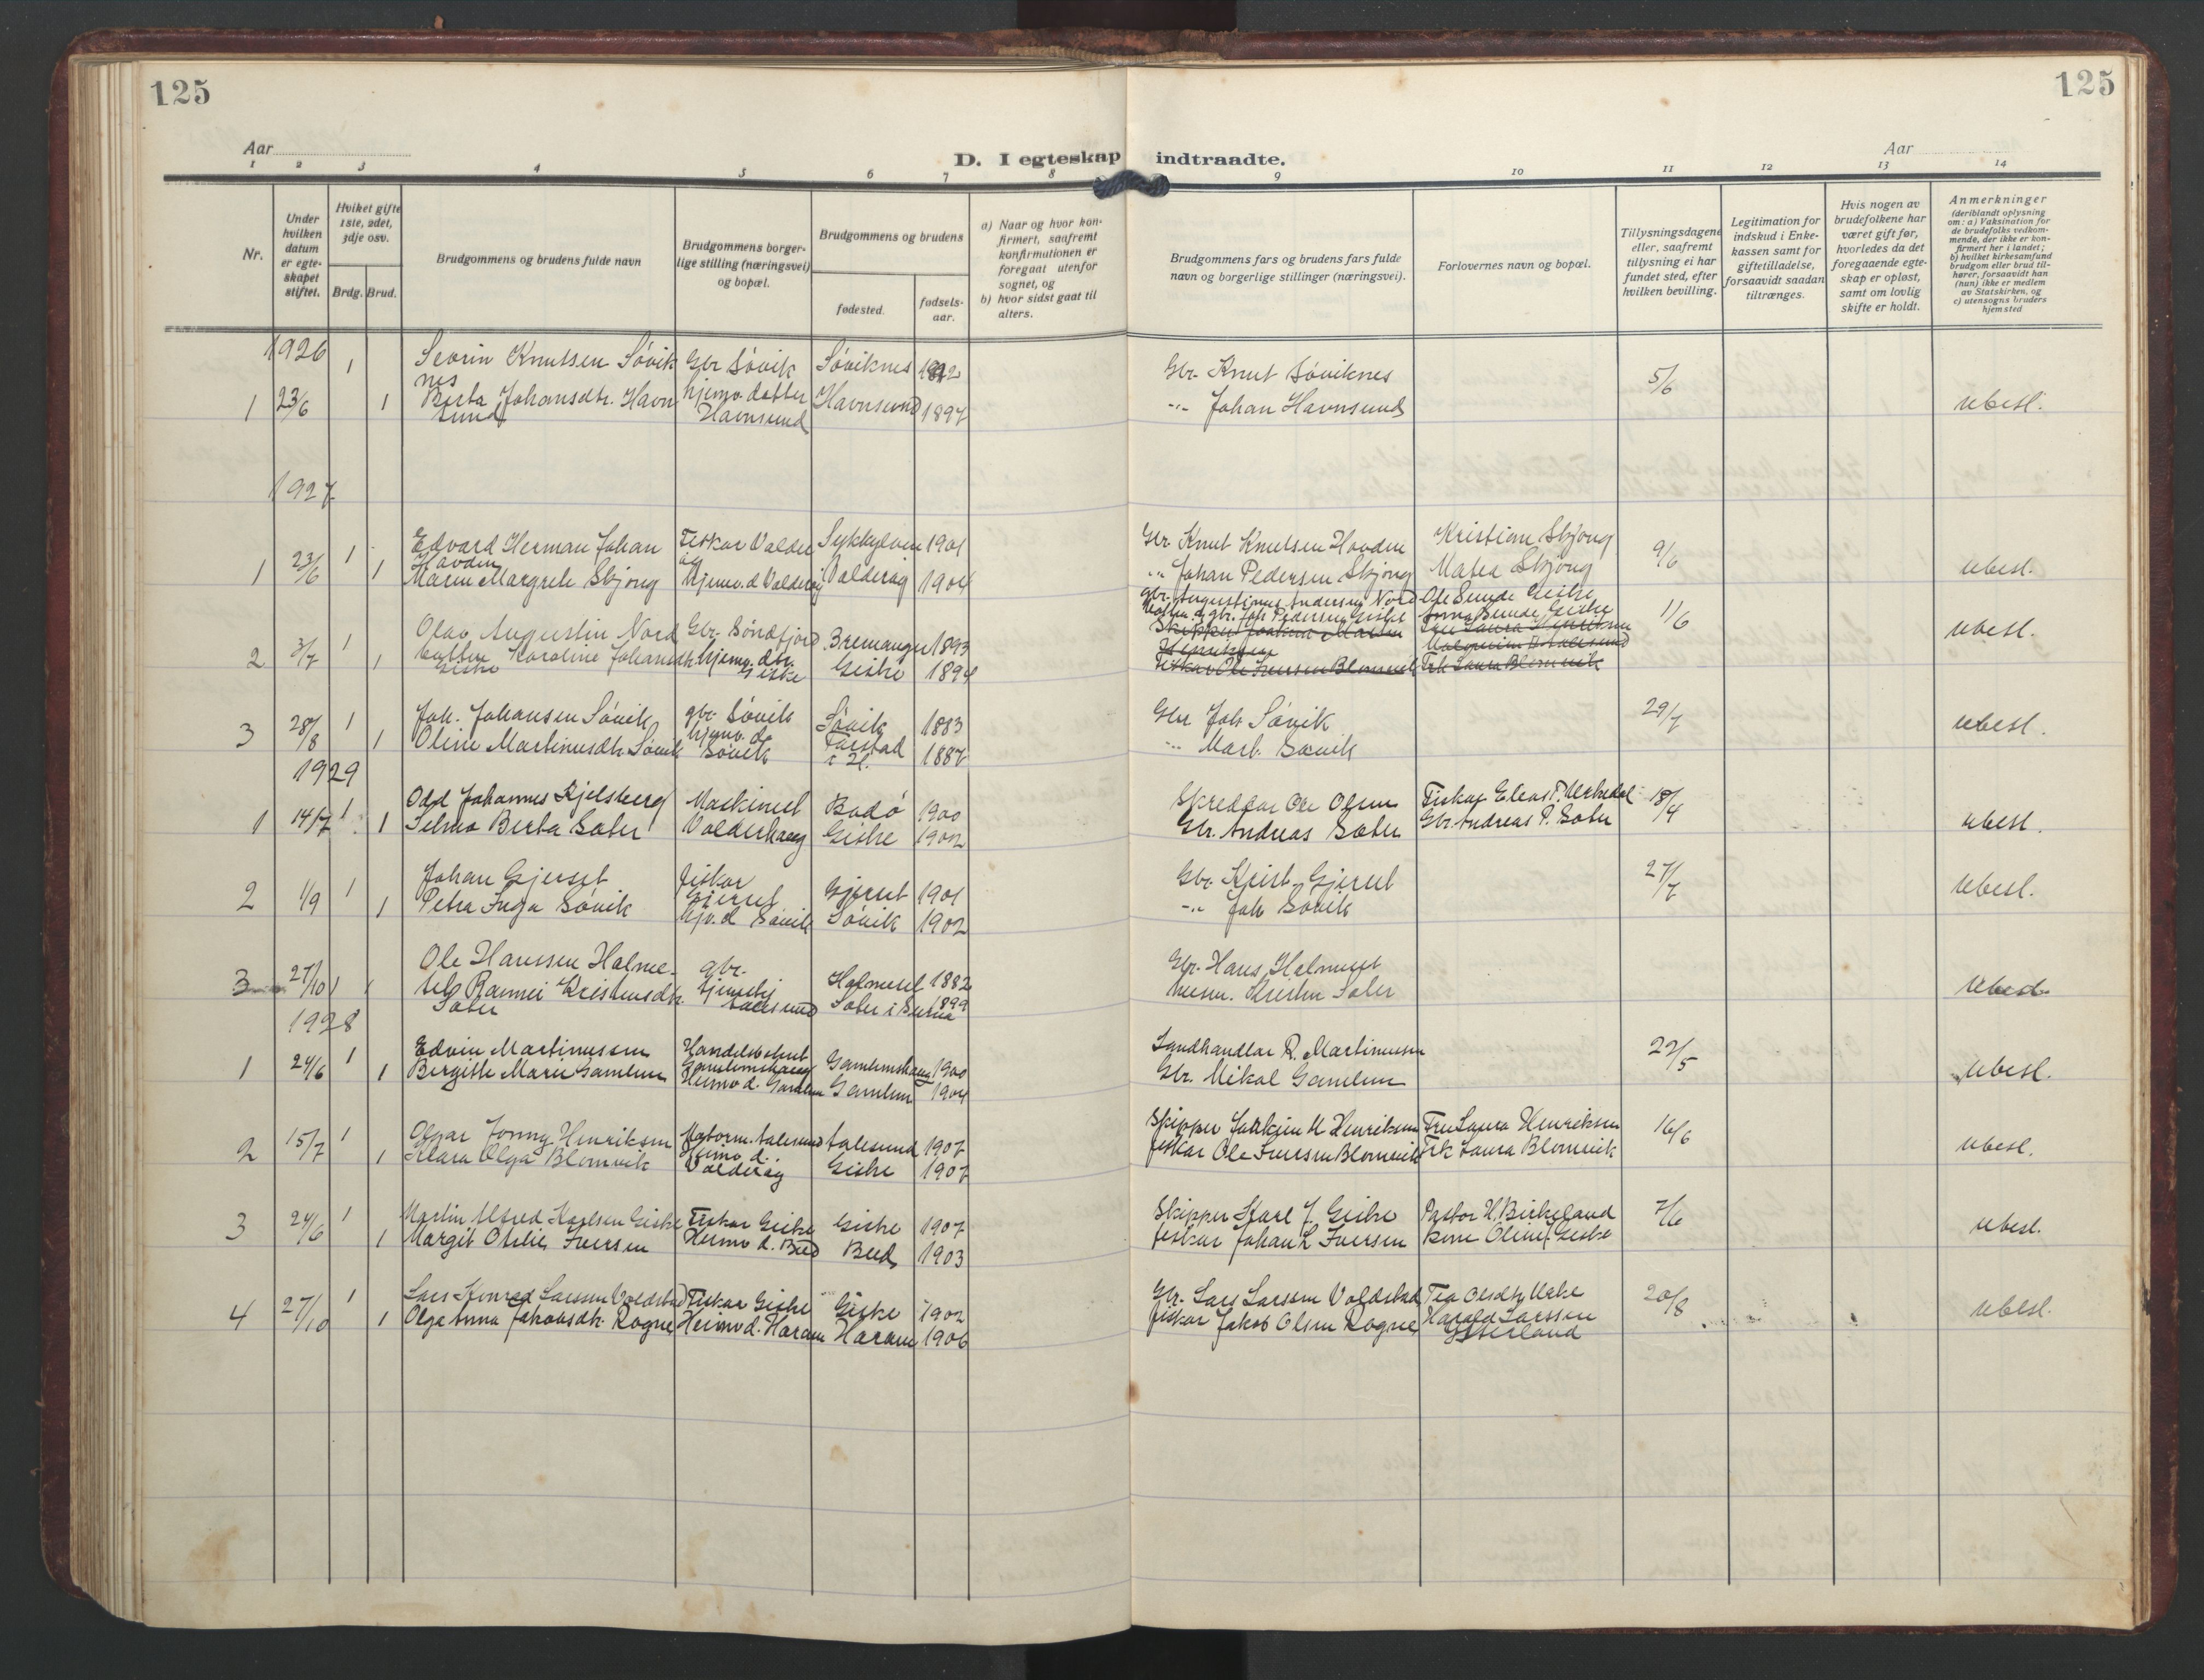 125
125
Aar
D. I egteskap indtraadte.
Aar
1 2 3 4 5 6 7 8 9 10 11 12 13 14
Nr.
Under hvilken datum er egteskapet stiftet.
Hviket gifte 1ste, 2det, 3dje osv.
Brdg. Brud.
Brudgommens og brudens fulde navn
Brudgommens borgerlige stilling (næringsvei) og bopæl.
Brudgommens og brudens
fødested.
fødselsaar.
a) Naar og hvor konfirmert, saafremt konfirmationen er foregaat utenfor sognet, og
b) hvor sidst gaat til alters.
Brudgommens fars og brudens fars fulde navn og borgerlige stillinger (næringsvei).
Forlovernes navn og bopæl.
Tillysningsdagene eller, saafremt tillysning ei har fundet sted, efter hvilken bevilling.
Legitimation for indskud i Enkekassen samt for giftetilladelse, forsaavidt saadan tiltrænges.
Hvis nogen av brudefolkene har været gift før, hvorledes da det foregaaende egteskap er opløst, samt om lovlig skifte er holdt.
Anmerkninger
(deriblandt oplysning om: a) Vaksination for de brudefolks vedkommende, der ikke er konfirmert her i landet; b) hvilket kirkesamfund brudgom eller brud tilhører, forsaavidt han (hun) ikke er medlem av Statskirken, og c) utensogns bruders hjemsted
1926
1 Sevrin Knutsen Søvik Gbr Søvik Søviknes Gbr. Knut Søviknes 5/6
nes
1 23/6 1 Berta Johansdtr. Havn hjemv. datter Havnsund 1897 -"- Johan Havnsund ubesl.
sund Havnsund
1927
1 Edvard Herman Johan Fiskar Valder Sykkylven 1901 Gbr. Knut Knutsen Hovden Kristian Skjong 9/6
Hovden
1 23/6 1 Maren Margrete Skjong hjemv. d Valderøy Valderøy 1904 -"- Johan Pedersen Skjong Matea Skjong ubesl.
gbr. Augustinus Andersen Nord Ole Sunde Giske
gbr. Joh Pedersen Giske Anna Sunde Giske 11/6
Olav Augustin Nord Gbr. Søndfjord Bremanger 1893 Skipper Joakim Fru Laura Henriksen ubesl.
2 3/7 1 1 Karoline Johansdtr. hjemv. dtr. Henriksen
Giske Giske Giske 1894 Fiskar Ole Iversen Blomvik Frk Laura Blomvik
Joh. Johansen Søvik gbr. Søvik Søvik 1883 Gbr Joh Søvik 29/7
3 28/8 1 1 Oline Martinusdtr. Søvik hjemv. d. Søvik 1887 -"- Mart. Søvik ubesl.
1929
Odd Johannes Kjelsberg Maskinist Bodø 1900 Skreddar Ole Olsen Fiskar Elias P. 18/4
1 14/7 1 1 Selma Berta Sæter Valderhaug Giske 1902 Gbr. Andreas Sæter Gbr Andreas P. Sæter ubesl.
Johan Gjerset fiskar Gjerset Gjerset 1901 Gbr. Krist. Gjerset 27/7
2 1/9 1 1 Petra Inga Søvik hjv. d Søvik Søvik 1902 -"- Joh Søvik ubesl.
Ole Hanssen Halme- gbr. Halmeset 1882 Gbr. Hans Halmeset
3 27/10 1 1 set Kristensdtr. Aalesund Sæter i 1899 Kristen Sæter ubesl.
Sæter
1928
Edvin Martinussen Gamlemshaug 1900 Landhandlar R. Martinussen 27/5
1 24/6 1 1 Birgitte Marie Gamlem Heimv d. Gamlem Gamlem 1904 Gbr. Mikal Gamlem ubesl.
Jonny Henriksen Motorm. Aalesund Aalesund 1907 Skipper Joakim M Henriksen Fru Laura Henriksen 16/6
2 15/7 1 1 Klara Olga Blomvik Heimv d. Valderøy Giske 1907 fiskar Ole Iversen Blomvik Frk Laura Blomvik ubesl.
Martin Alfred Karlsen Giske Fiskar Giske Giske 1907 Skipper Karl J. Giske Pastor H. Birkeland 7/6
3 24/6 1 1 Margit Otelie Iversen Heimv d. Bud Bud 1903 fiskar Johan L Iversen Kone Oline J. Giske ubesl.
Lars Konrad Larssen Voldstad Fiskar Giske Giske 1902 Gbr. Lars Larssen Voldstad Tea Olsdtr. 20/8
4 27/10 1 1 Olga Anna Jakobsdtr. Rogne Heimv d. Haram Haram 1906 fiskar Jakob Olsen Rogne Harald Larssen ubesl.